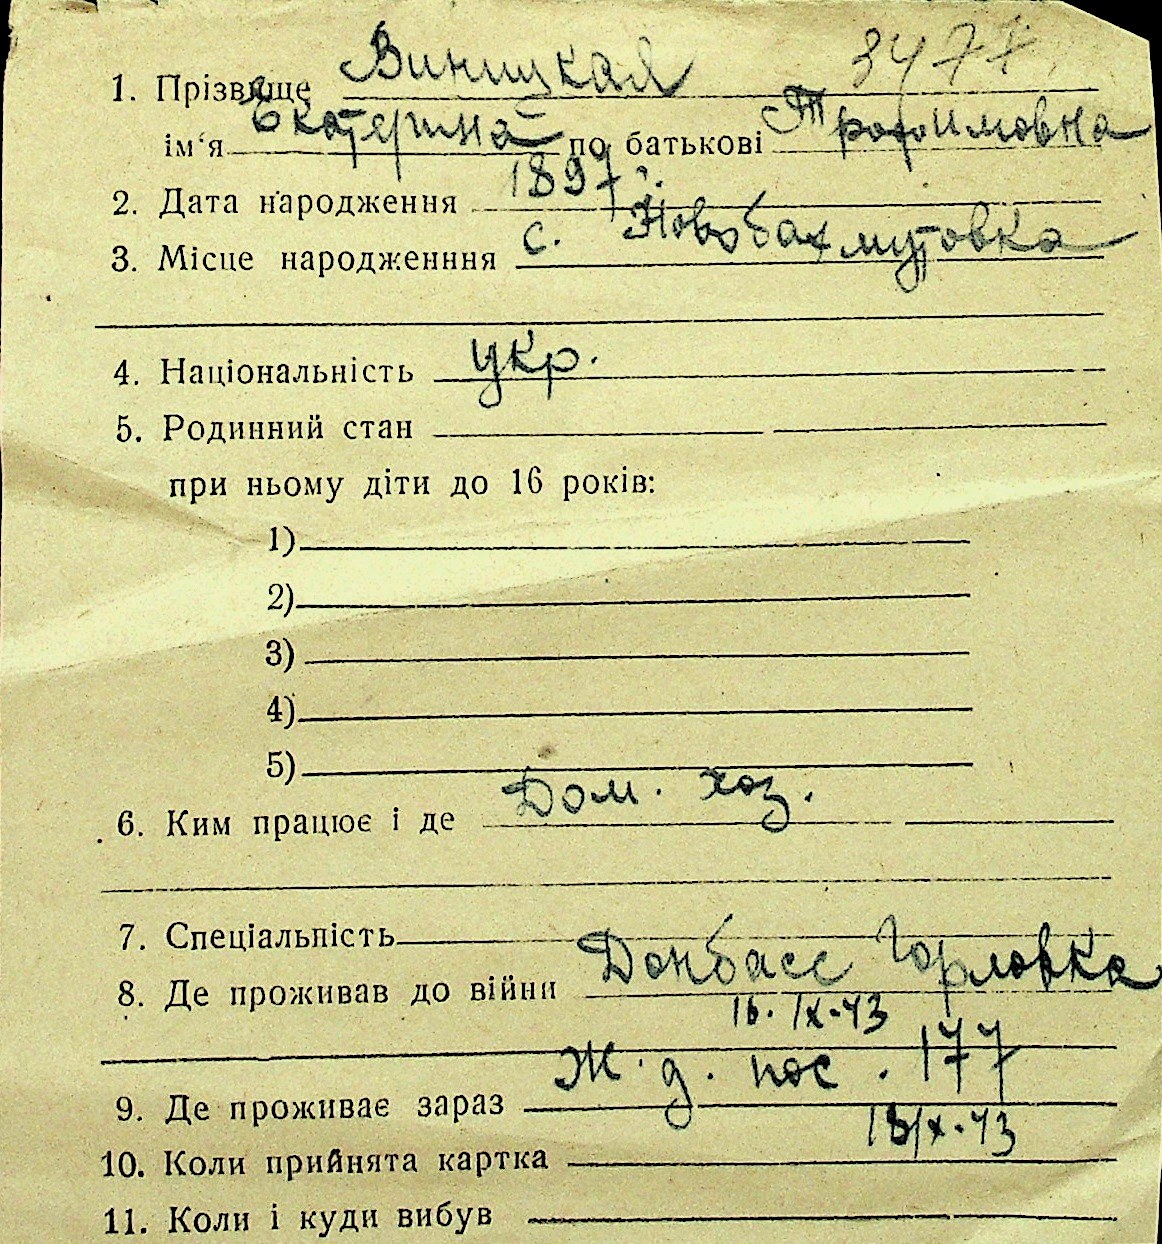 3477
1. Прізвище Виницкая
ім'я Екатерина по батькові Трофимовна
2. Дата народження 1897 г.
3. Місце народженння с. Новобахмутовка
4. Національність укр.
5. Родинний стан
при ньому діти до 16 років:
1)
2)
3)
4)
5)
6. Ким працює і де Дом. хоз.
7. Спеціальність
8. Де проживав до війни Донбасс Горловка
16.IX-43
9. Де проживає зараз Ж.д. пос. 177
18/IX-43
10. Коли прийнята картка
11. Коли і куди вибув